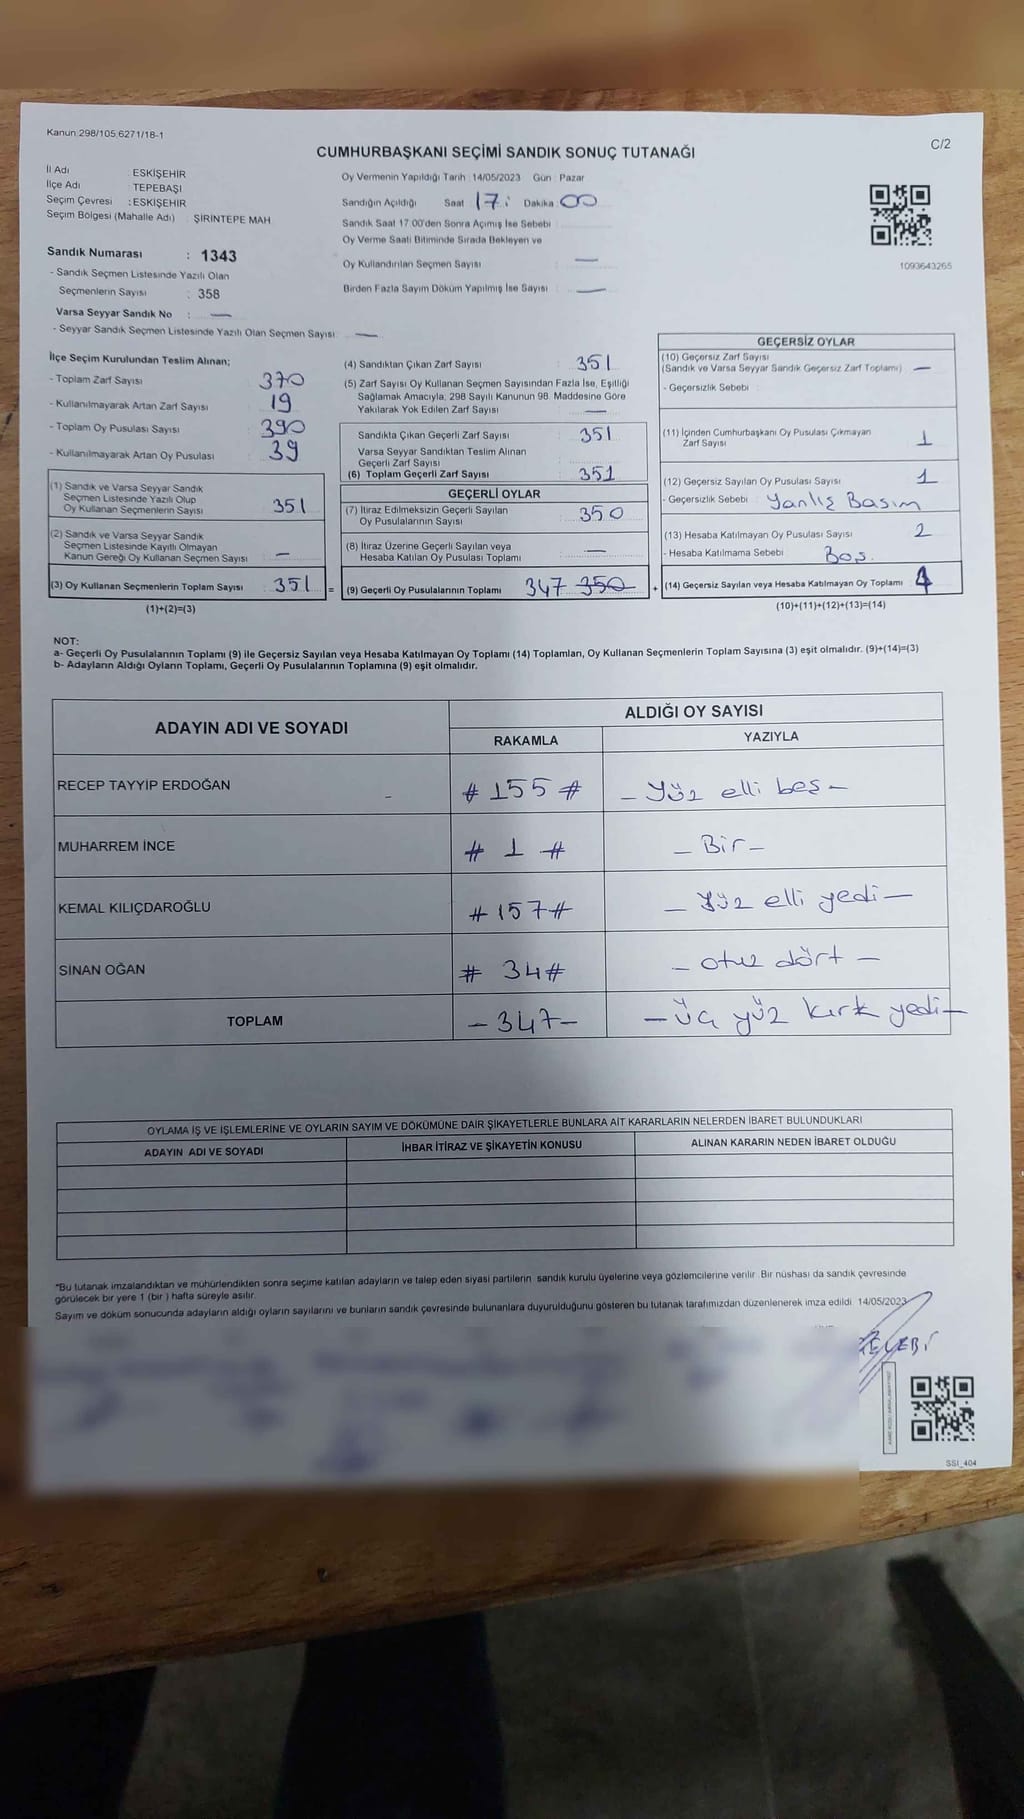 Kanun 298/105,6271/18-1
C/2
CUMHURBAŞKANI SEÇİMİ SANDIK SONUÇ TUTANAĞI
İl Adı : ESKİŞEHİR
İlçe Adı : TEPEBAŞI
Seçim Çevresi : ESKİŞEHİR
Seçim Bölgesi (Mahalle Adı) ŞİRİNTEPE MAH
Oy Vermenin Yapıldığı Tarih : 14/05/2023 Gün : Pazar
Sandığın Açıldığı Saat 17: Dakika 00
Sandık Saat 17:00'den Sonra Açımış İse Sebebi
Oy Verme Saati Bitiminde Sırada Bekleyen ve
Oy Kullandırılan Seçmen Sayısı —
Birden Fazla Sayım Döküm Yapılmış İse Sayısı : —
1093643265
Sandık Numarası : 1343
- Sandık Seçmen Listesinde Yazılı Olan
Seçmenlerin Sayısı : 358
Varsa Seyyar Sandık No : —
- Seyyar Sandık Seçmen Listesinde Yazılı Olan Seçmen Sayısı : —
İlçe Seçim Kurulundan Teslim Alınan;
- Toplam Zarf Sayısı 370
- Kullanılmayarak Artan Zarf Sayısı 19
- Toplam Oy Pusulası Sayısı 390
- Kullanılmayarak Artan Oy Pusulası 39
(1) Sandık ve Varsa Seyyar Sandık
Seçmen Listesinde Yazılı Olup
Oy Kullanan Seçmenlerin Sayısı 351
(2) Sandık ve Varsa Seyyar Sandık
Seçmen Listesinde Kayıtlı Olmayan
Kanun Gereği Oy Kullanan Seçmen Sayısı —
(3) Oy Kullanan Seçmenlerin Toplam Sayısı : 351 =
(1)+(2)=(3)
(4) Sandıktan Çıkan Zarf Sayısı : 351
(5) Zarf Sayısı Oy Kullanan Seçmen Sayısından Fazla İse, Eşitliği
Sağlamak Amacıyla, 298 Sayılı Kanunun 98. Maddesine Göre
Yakılarak Yok Edilen Zarf Sayısı —
Sandıkta Çıkan Geçerli Zarf Sayısı : 351
Varsa Seyyar Sandıktan Teslim Alınan
Geçerli Zarf Sayısı
(6) Toplam Geçerli Zarf Sayısı : 351
GEÇERLİ OYLAR
(7) İtiraz Edilmeksizin Geçerli Sayılan
Oy Pusulalarının Sayısı 350
(8) İtiraz Üzerine Geçerli Sayılan veya
Hesaba Katılan Oy Pusulası Toplamı —
(9) Geçerli Oy Pusulalarının Toplamı 347 350 +
GEÇERSİZ OYLAR
(10) Geçersiz Zarf Sayısı
(Sandık ve Varsa Seyyar Sandık Geçersiz Zarf Toplamı) —
- Geçersizlik Sebebi :
(11) İçinden Cumhurbaşkanı Oy Pusulası Çıkmayan
Zarf Sayısı 1
(12) Geçersiz Sayılan Oy Pusulası Sayısı : 1
- Geçersizlik Sebebi : Yanlış Basım
(13) Hesaba Katılmayan Oy Pusulası Sayısı : 2
- Hesaba Katılmama Sebebi Boş.
(14) Geçersiz Sayılan veya Hesaba Katılmayan Oy Toplamı : 4
(10)+(11)+(12)+(13)=(14)
NOT:
a- Geçerli Oy Pusulalarının Toplamı (9) ile Geçersiz Sayılan veya Hesaba Katılmayan Oy Toplamı (14) Toplamları, Oy Kullanan Seçmenlerin Toplam Sayısına (3) eşit olmalıdır. (9)+(14)=(3)
b- Adayların Aldığı Oyların Toplamı, Geçerli Oy Pusulalarının Toplamına (9) eşit olmalıdır.
ADAYIN ADI VE SOYADI
ALDIĞI OY SAYISI
RAKAMLA YAZIYLA
RECEP TAYYİP ERDOĞAN # 155 # - Yüz elli beş -
MUHARREM İNCE # 1 # - Bir -
KEMAL KILIÇDAROĞLU # 157 # - Yüz elli yedi -
SİNAN OĞAN # 34 # - otuz dört -
TOPLAM - 347 - - üç yüz kırk yedi -
OYLAMA İŞ VE İŞLEMLERİNE VE OYLARIN SAYIM VE DÖKÜMÜNE DAİR ŞİKAYETLERLE BUNLARA AİT KARARLARIN NELERDEN İBARET BULUNDUKLARI
ADAYIN ADI VE SOYADI İHBAR İTİRAZ VE ŞİKAYETİN KONUSU ALINAN KARARIN NEDEN İBARET OLDUĞU
*Bu tutanak imzalandıktan ve mühürlendikten sonra seçime katılan adayların ve talep eden siyasi partilerin sandık kurulu üyelerine veya gözlemcilerine verilir. Bir nüshası da sandık çevresinde
görülecek bir yere 1 (bir ) hafta süreyle asılır.
Sayım ve döküm sonucunda adayların aldığı oyların sayılarını ve bunların sandık çevresinde bulunanlara duyurulduğunu gösteren bu tutanak tarafımızdan düzenlenerek imza edildi. 14/05/2023
SSI_404